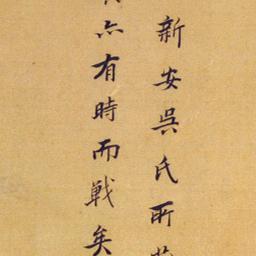 新安吳氏所
亦有時而戦矣